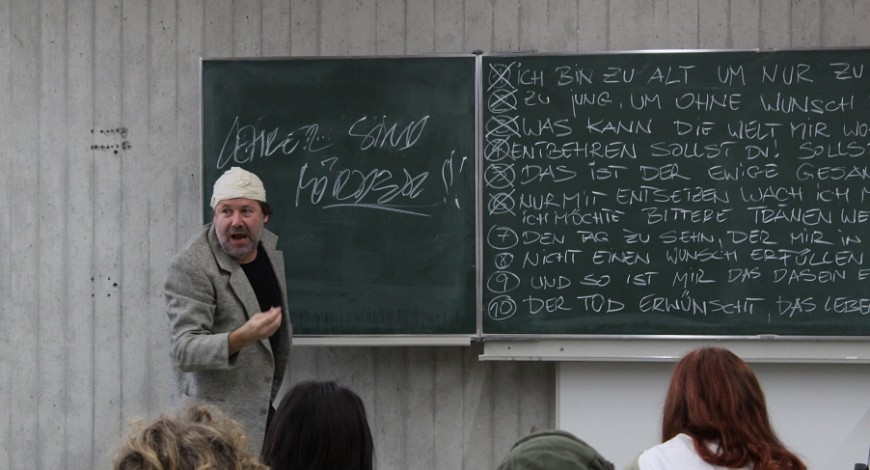 LEHRER SIND
MÖRDER!!
ICH BIN ZU ALT UM NUR ZU
ZU JUNG, UM OHNE WUNSCH
WAS KANN DIE WELT MIR WO
ENTBEHREN SOLLST DU! SOLLST
DAS IST DER EWIGE GESAN
NUR MIT ENTSETZEN WACH ICH M
ICH MÖCHTE BITTERE TRÄNEN WE
7 DEN TAG ZU SEHN, DER MIR IN
8 NICHT EINEN WUNSCH ERFÜLLEN
9 UND SO IST MIR DAS DASEIN E
10 DER TOD ERWÜNSCHT, DAS LEBE